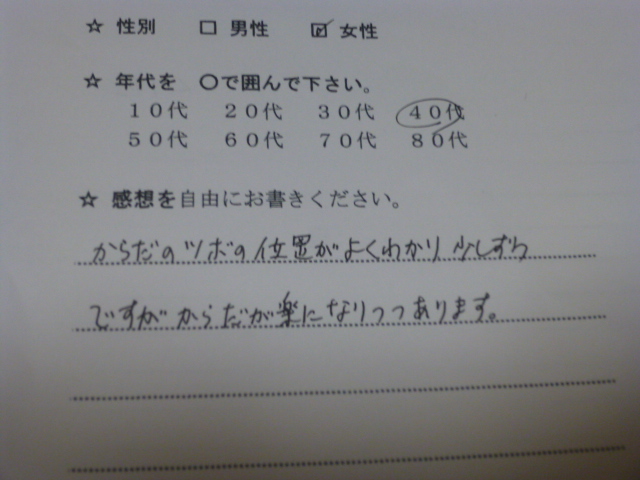 ☆ 性別 □ 男性 ☑ 女性
☆ 年代を ○で囲んで下さい。
10代 20代 30代 40代
50代 60代 70代 80代
☆ 感想を自由にお書きください。
からだのツボの位置がよくわかり 少しずつ
ですが からだが楽になりつつあります。